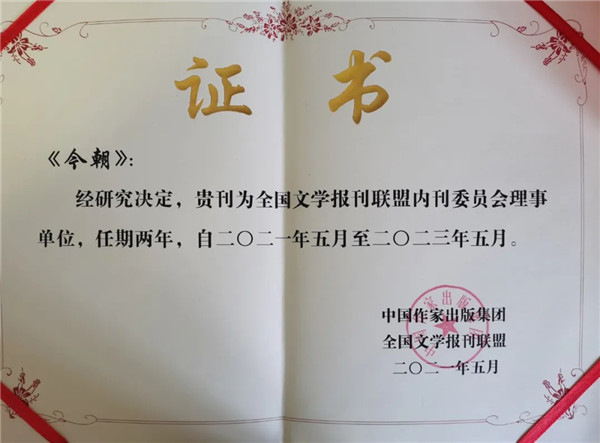 证 书
《今朝》：
经研究决定，贵刊为全国文学报刊联盟内刊委员会理事
单位，任期两年，自二〇二一年五月至二〇二三年五月。
中国作家出版集团
全国文学报刊联盟
二〇二一年五月